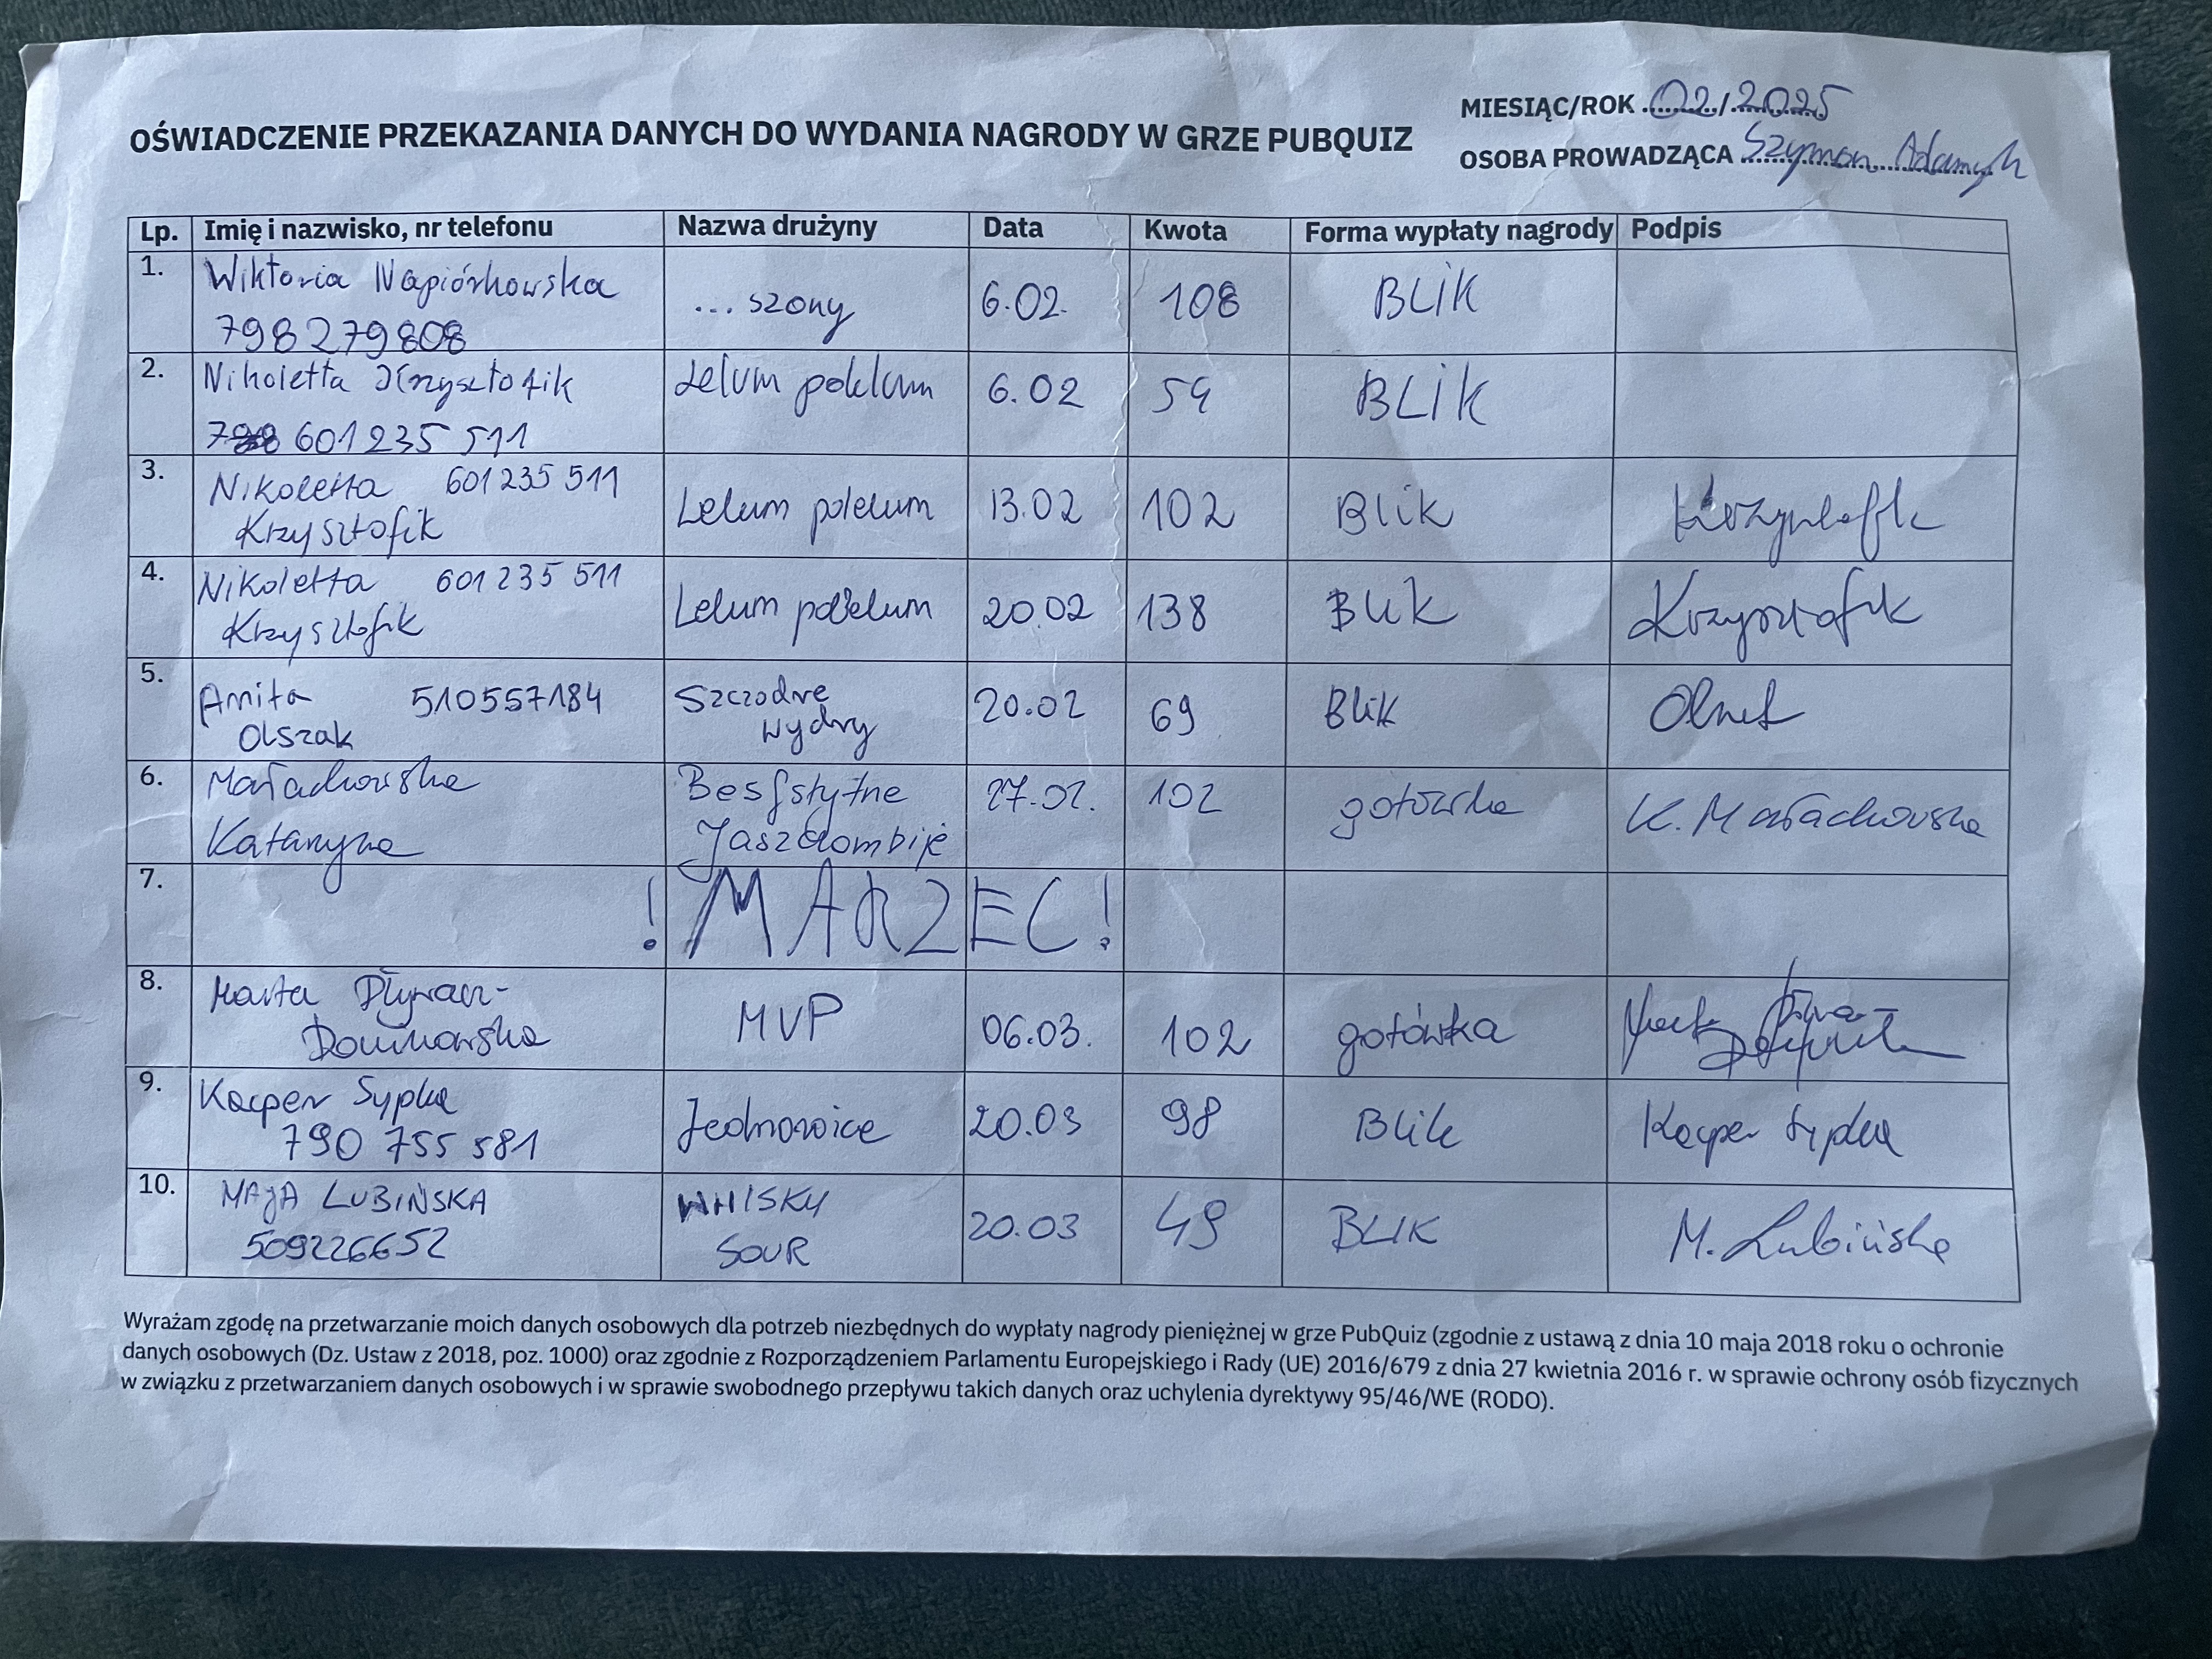 OŚWIADCZENIE PRZEKAZANIA DANYCH DO WYDANIA NAGRODY W GRZE PUBQUIZ
MIESIĄC/ROK 02/2025
OSOBA PROWADZĄCA Szymon
Lp. Imię i nazwisko, nr telefonu Nazwa drużyny Data Kwota Forma wypłaty nagrody Podpis
1. Wiktoria Napiórkowska
798279808
...szony 6.02. 108 BLIK
2. Nikoletta Krzysztofik
601235 511
Lelum polelum 6.02 54 BLIK
3. Nikoletta 601235 511
Krzysztofik
Lelum polelum 13.02 102 Blik
4. Nikoletta 601235 511
Krzysztofik
Lelum polelum 20.02 138 Blik Krzysztofik
5. Anita 510557184
Olszak
Szczodre
wydry
20.02 69 Blik
6. Małachowska
Katarzyna
Jaszczombije
27.02. 102 gotówka K. Małachowska
7. ! MARZEC !
8. Marta
MVP 06.03. 102 gotówka
9. Kacper Sypka
790 755 581
Jednorożce 20.03 98 Blik Kacper Sypka
10. MAJA LUBIŃSKA
509226652
WHISKY
SOUR
20.03 49 BLIK M. Lubińska
Wyrażam zgodę na przetwarzanie moich danych osobowych dla potrzeb niezbędnych do wypłaty nagrody pieniężnej w grze PubQuiz (zgodnie z ustawą z dnia 10 maja 2018 roku o ochronie
danych osobowych (Dz. Ustaw z 2018, poz. 1000) oraz zgodnie z Rozporządzeniem Parlamentu Europejskiego i Rady (UE) 2016/679 z dnia 27 kwietnia 2016 r. w sprawie ochrony osób fizycznych
w związku z przetwarzaniem danych osobowych i w sprawie swobodnego przepływu takich danych oraz uchylenia dyrektywy 95/46/WE (RODO).